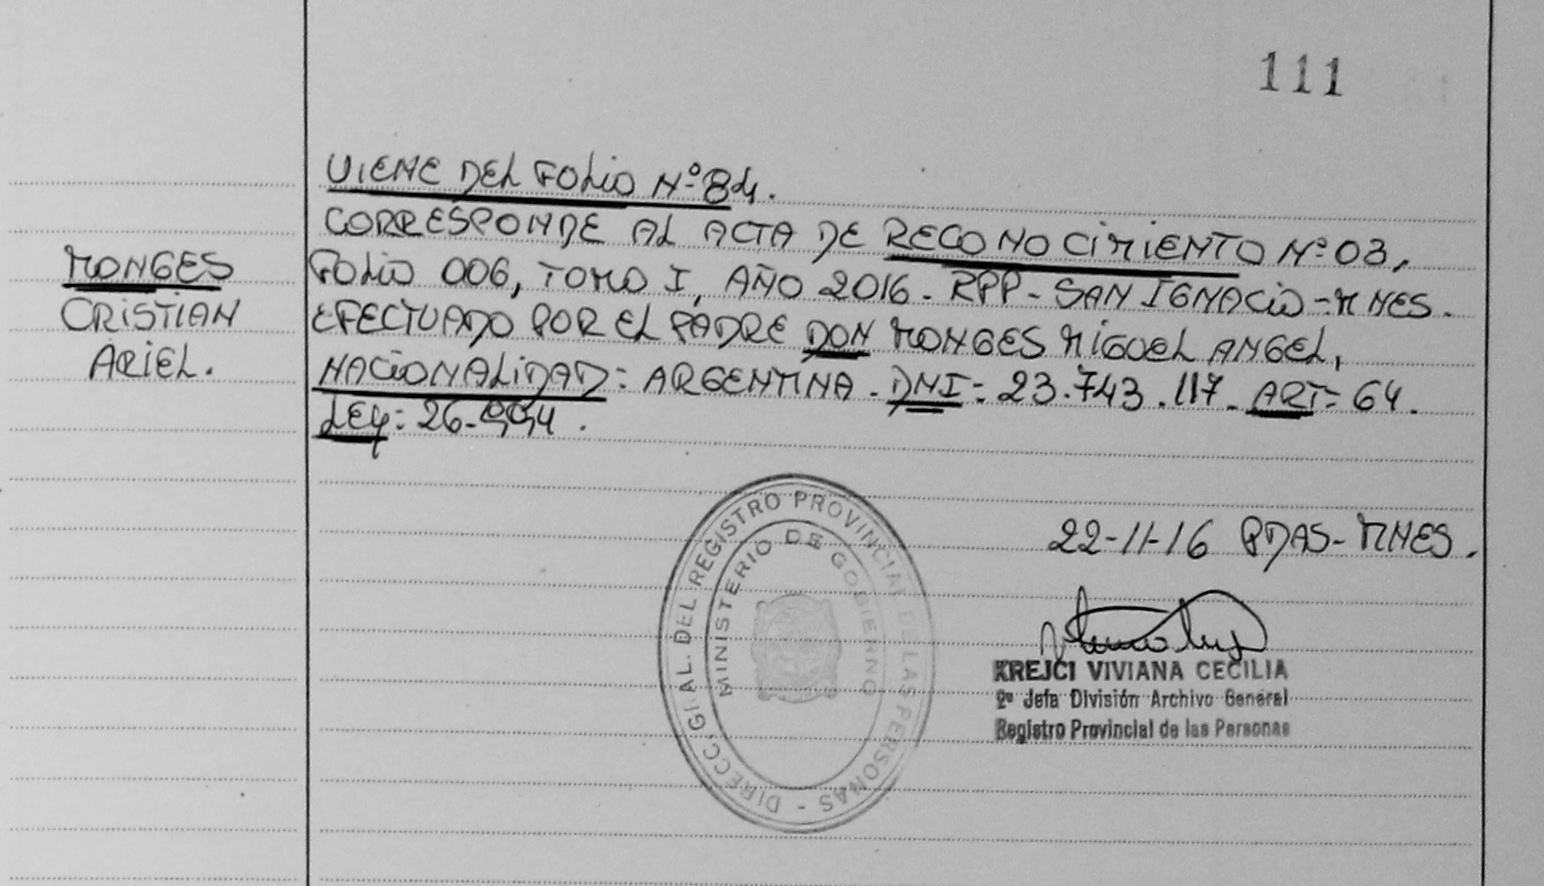 111
VIENE DEL FOLIO Nº 84.
CORRESPONDE AL ACTA DE RECONOCIMIENTO Nº 03,
FOLIO 006, TOMO I, AÑO 2016. RPP - SAN IGNACIO - MNES.
EFECTUADO POR EL PADRE DON MONGES MIGUEL ANGEL,
NACIONALIDAD: ARGENTINA. DNI: 23.743.117. ART: 64.
LEY: 26.994.
MONGES
CRISTIAN
ARIEL.
22-11-16 PDAS - MNES.
DIRECC. GRAL. DEL REGISTRO PROVINCIAL DE LAS PERSONAS -
MINISTERIO DE GOBIERNO
KREJCI VIVIANA CECILIA
2º Jefa División Archivo General
Registro Provincial de las Personas